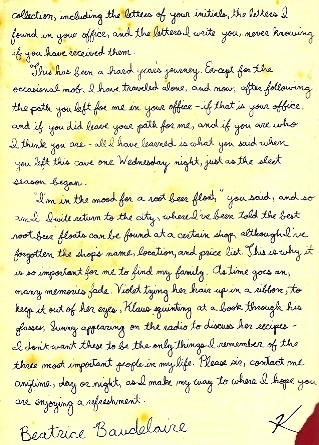 collection, including the letters of your initials, the letters I
found in your office, and the letters I write you, never knowing
if you have received them.
"This has been a hard year's journey. Except for the
occasional mob, I have traveled alone, and now, after following
the path you left for me in your office – if that is your office,
and if you did leave your path for me, and if you are who
I think you are – all I have learned is what you said when
you left this cave one Wednesday night, just as the sleet
season began.
"I'm in the mood for a root beer float," you said, and so
am I. I will return to the city, where I've been told the best
root beer floats can be found at a certain shop, although I've
forgotten the shop's name, location, and price list. This is why it
is so important for me to find my family. As time goes on,
many memories fade. Violet tying her hair up in a ribbon, to
keep it out of her eyes, Klaus squinting at a book through his
glasses, Sunny appearing on the radio to discuss her recipes –
I don't want these to be the only things I remember of the
three most important people in my life. Please sir, contact me
anytime, day or night, as I make my way to where I hope you
are enjoying a refreshment.
Beatrice Baudelaire